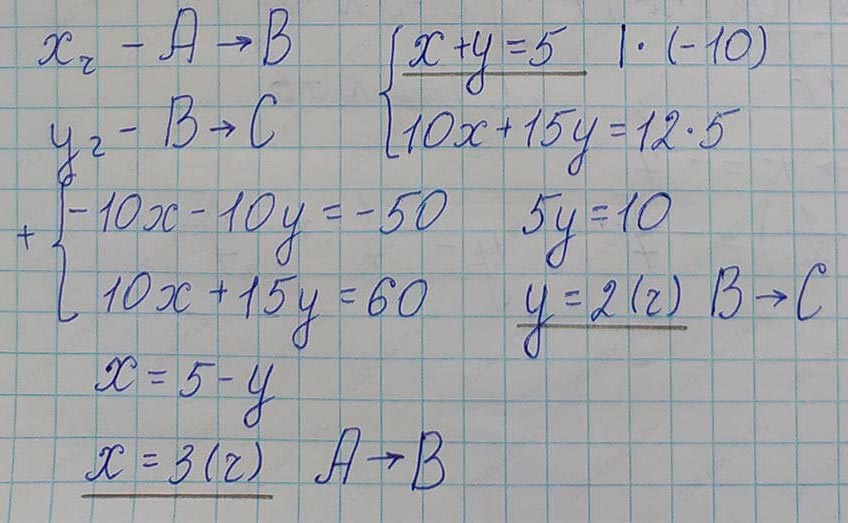 x ч - A → B
y ч - B → C
{ x + y = 5 | · (-10)
10x + 15y = 12 · 5
+ { -10x - 10y = -50
10x + 15y = 60
5y = 10
y = 2 (ч) B → C
x = 5 - y
x = 3 (ч) A → B